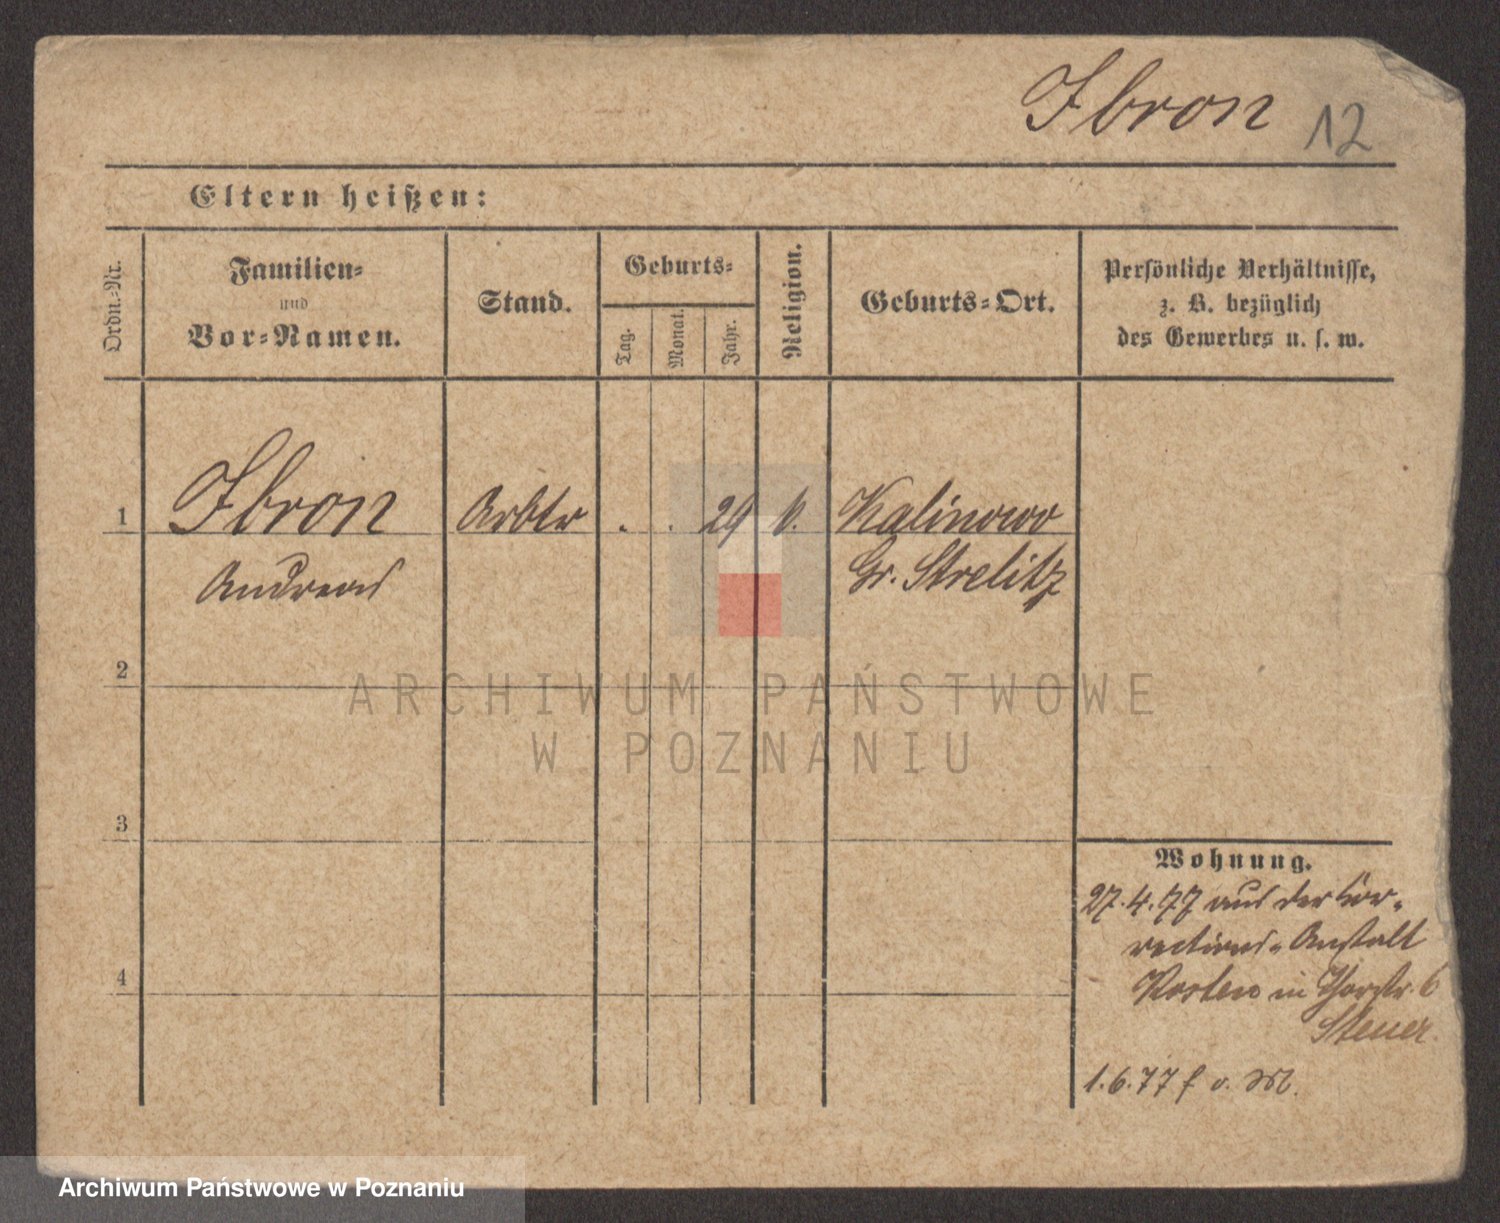 Ibron 12
Eltern heißen:
Ordn.-Nr.
Familien-
und
Vor-Namen.
Stand.
Geburts-
Tag.
Monat.
Jahr.
Religion.
Geburts-Ort.
Persönliche Verhältnisse,
z. B. bezüglich
des Gewerbes u. s. w.
1 Ibron Arbtr . . 29 k. Kalinowo
Andreas Gr. Strelitz
2
3
4
Wohnung.
27.4.77 aus der Cor-
rections-Anstalt
Kosten in Thorstr. 6
Steuer.
1.6.77 f v. M.
ARCHIWUM PAŃSTWOWE
W POZNANIU
Archiwum Państwowe w Poznaniu